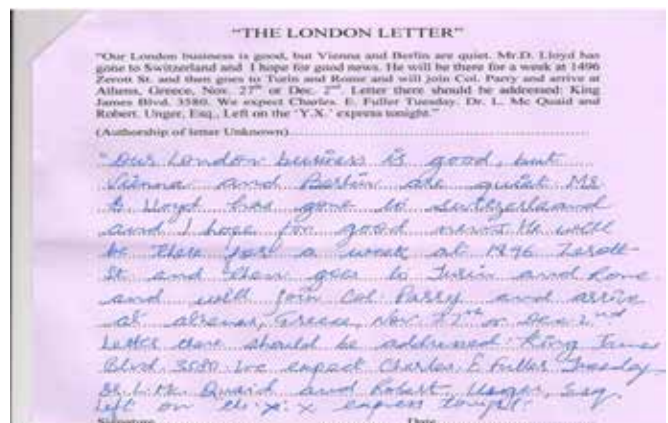 "THE LONDON LETTER"
"Our London business is good, but Vienna and Berlin are quiet. Mr.D. Lloyd has
gone to Switzerland and I hope for good news. He will be there for a week at 1496
Zerott St. and then goes to Turin and Rome and will join Col. Parry and arrive at
Athens, Greece, Nov. 27th or Dec. 2nd. Letter there should be addressed: King
James Blvd. 3580. We expect Charles. E. Fuller Tuesday. Dr. L. Mc Quaid and
Robert. Unger, Esq., Left on the 'Y.X.' express tonight."
(Authorship of letter Unknown)
"Our London business is good, but
Vienna and Berlin are quiet. Mr
D. Lloyd has gone to Switzerland
and I hope for good news. He will
be there for a week at 1496 Zerott
St and then goes to Turin and Rome
and will join Col. Parry and arrive
at Greece, Nov 27th or Dec 2nd
Letter there should be addressed: King James
Blvd. 3580 We expect Charles. E Fuller Tuesday
Dr. L. Mc Quaid and Robert, Unger, Esq
left on express tonight.
Signature
Date